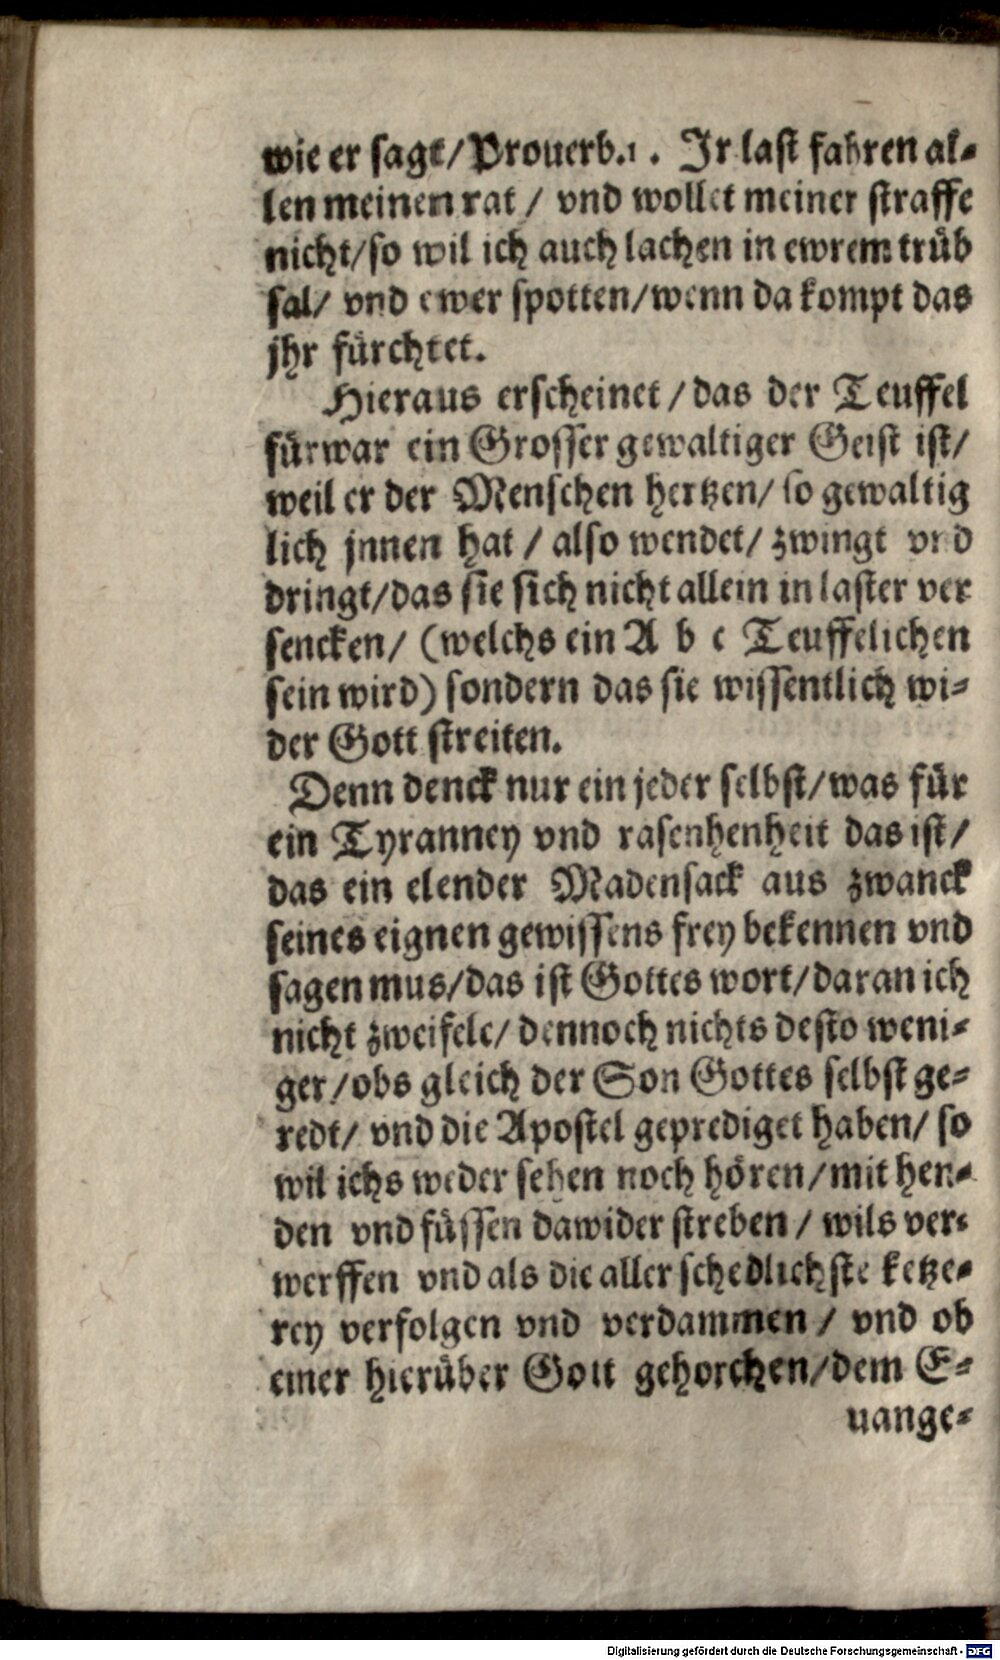 wie er sagt/Prouerb.1. Jr last fahren al-
len meinen rat / vnd wollet meiner straffe
nicht/so wil ich auch lachen in ewrem trüb
sal/ vnd ewer spotten/wenn da kompt das
jhr fürchtet.
Hieraus erscheinet / das der Teuffel
fürwar ein Grosser gewaltiger Geist ist/
weil er der Menschen hertzen/ so gewaltig
lich jnnen hat / also wendet/ zwingt vnd
dringt/das sie sich nicht allein in laster ver
sencken/ (welchs ein A b c Teuffelichen
sein wird) sondern das sie wissentlich wi-
der Gott streiten.
Denn denck nur ein jeder selbst/was für
ein Tyranney vnd rasenhenheit das ist/
das ein elender Madensack aus zwanck
seines eignen gewissens frey bekennen vnd
sagen mus/das ist Gottes wort/daran ich
nicht zweifele/ dennoch nichts desto weni-
ger/obs gleich der Son Gottes selbst ge-
redt/ vnd die Apostel geprediget haben/ so
wil ichs weder sehen noch hören/mit hen-
den vnd füssen dawider streben / wils ver-
werffen vnd als die aller schedlichste ketze-
rey verfolgen vnd verdammen / vnd ob
einer hierüber Gott gehorchen/dem E-
uange-
Digitalisierung gefördert durch die Deutsche Forschungsgemeinschaft - DFG